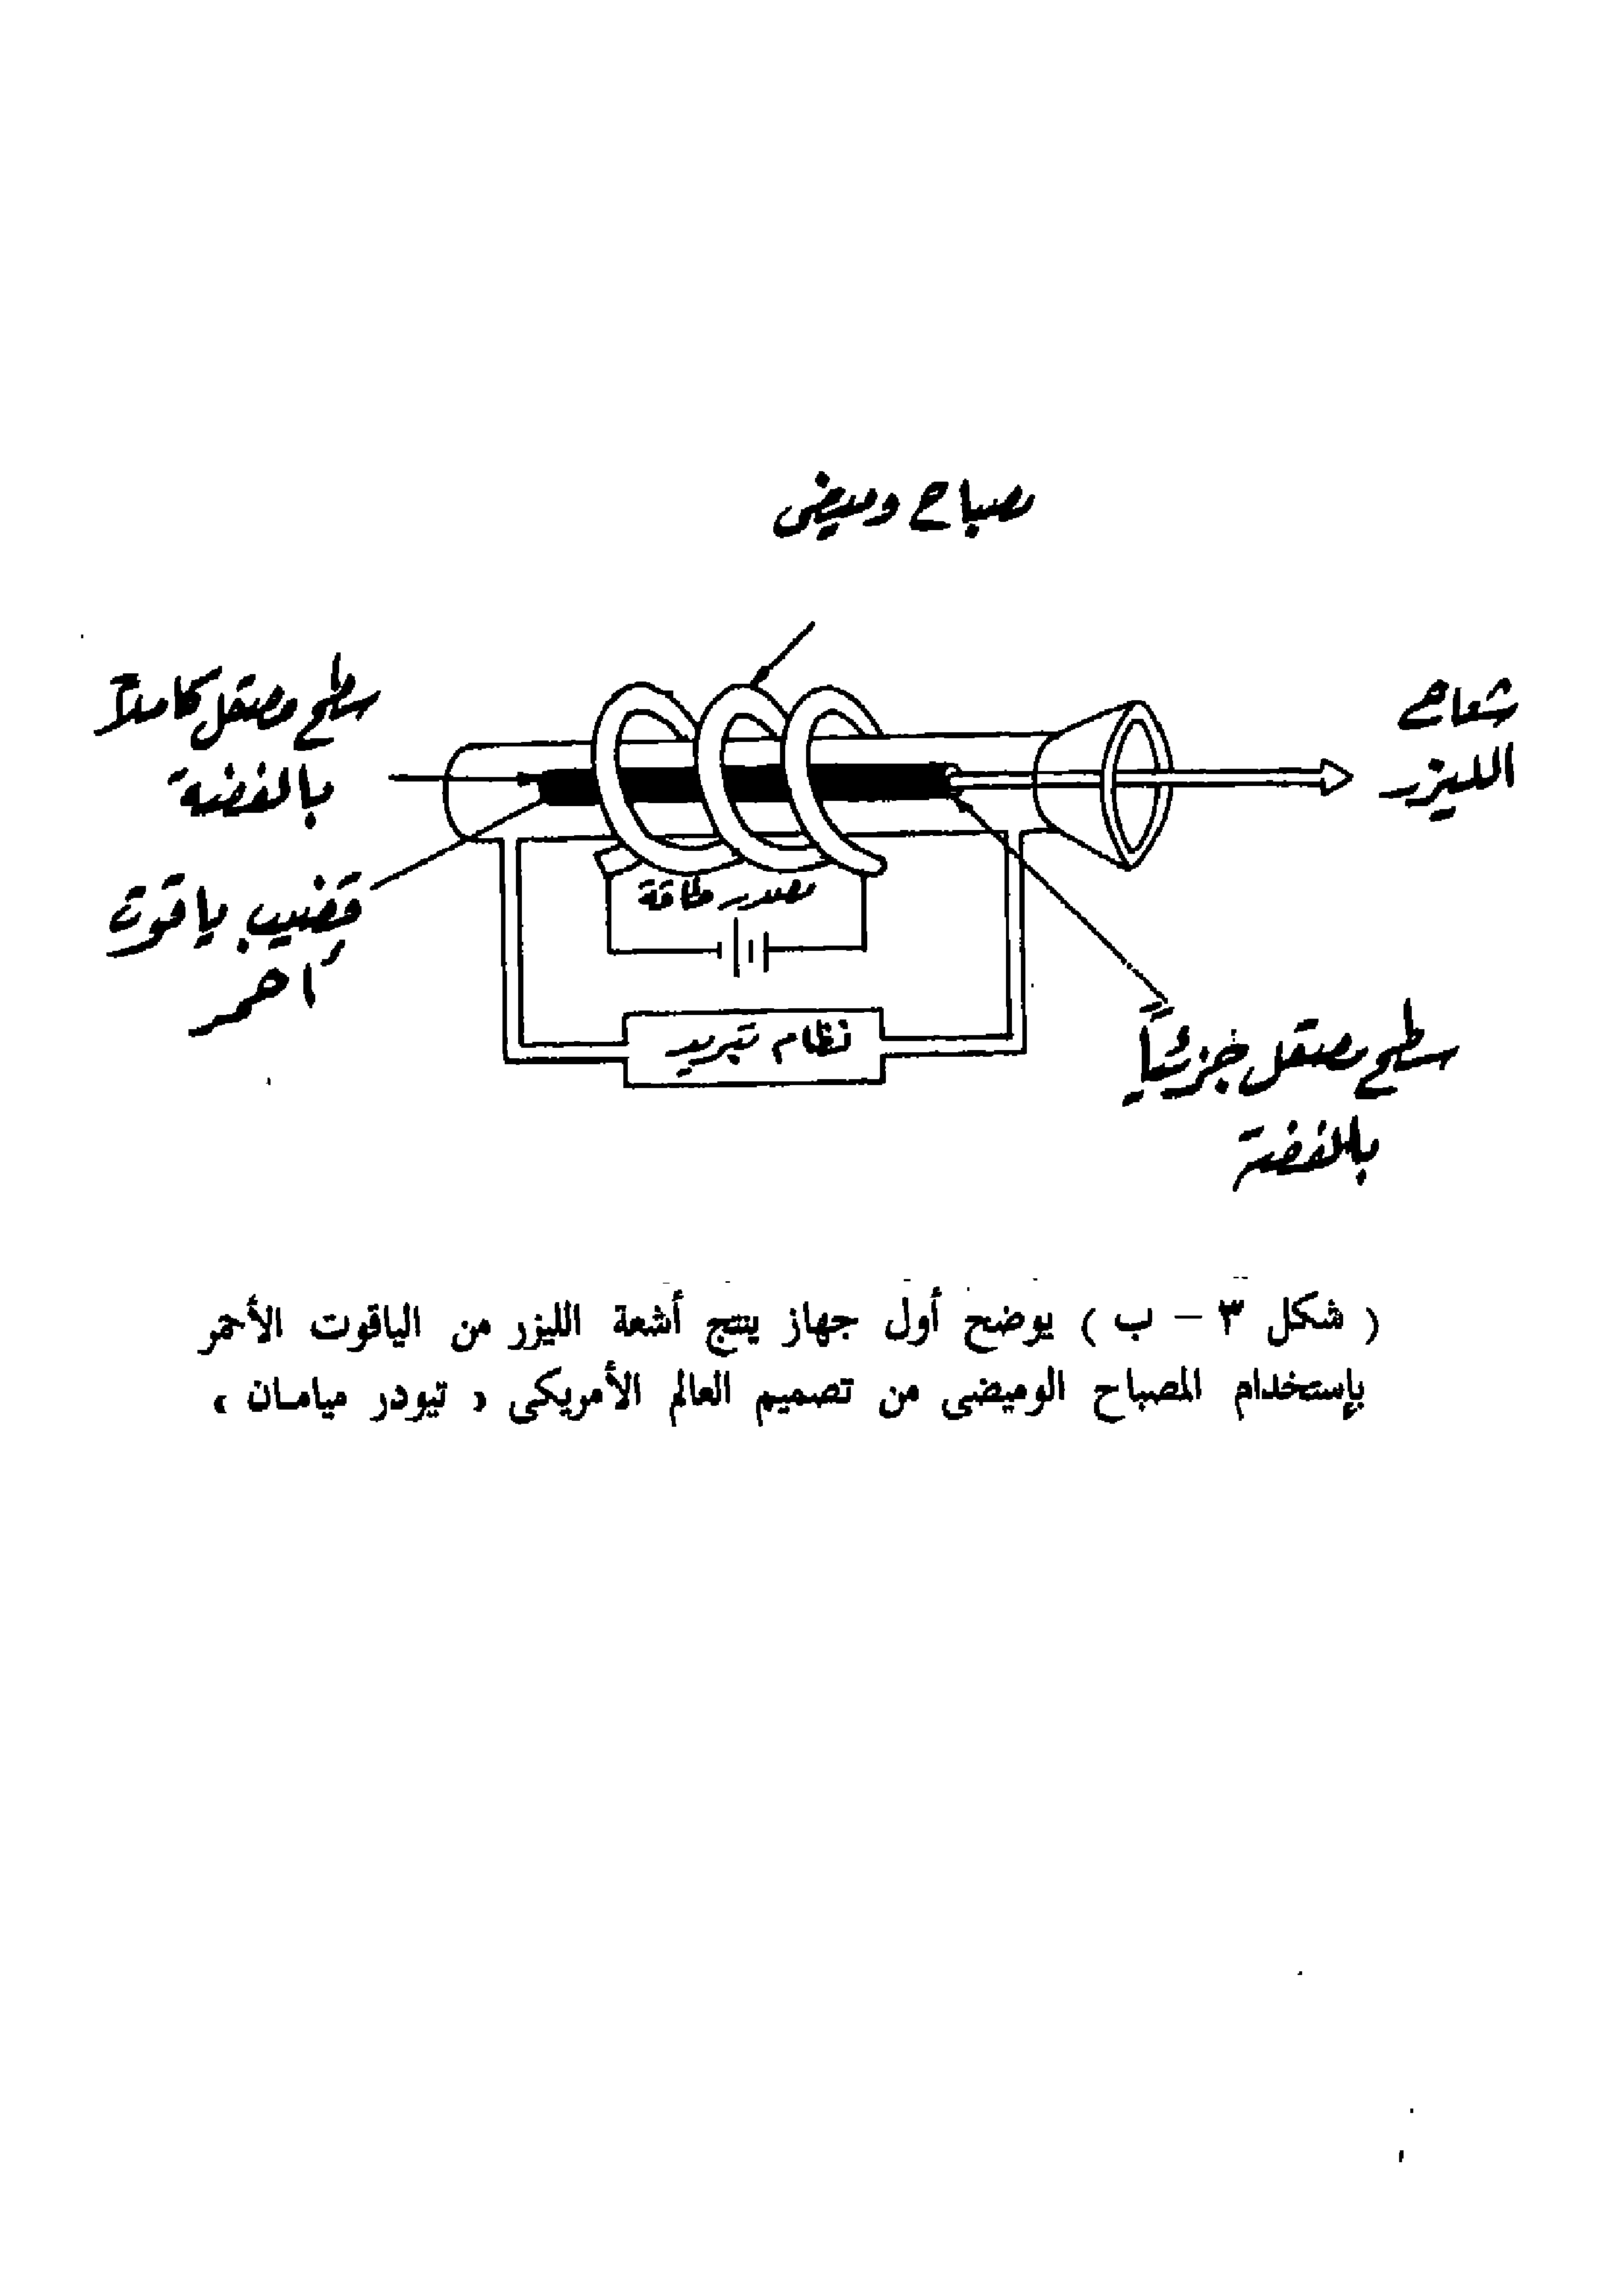 مصباح وميضى
سطح مصقل كاملاً
بالفضة
شعاع
الليزر
قضيب ياقوت
أحمر
مصدر طاقة
نظام تبريد
سطح مصقل جزئياً
بالفضة
( شكل ٣ – ب ) يوضح أول جهاز ينتج أشعة الليزر من الياقوت الأحمر
بإستخدام المصباح الوميضى من تصميم العالم الأمريكى « تيودر ميامـان »